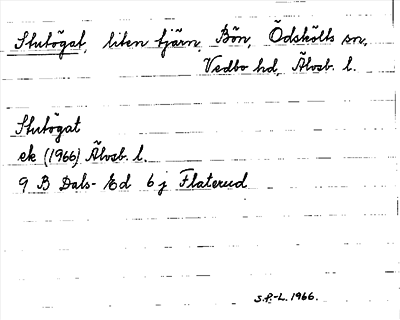 Stutögat, liten tjärn, Bön, Ödskölts sn,
Vedbo hd, Älvsb. l.
Stutögat
ek (1966) Älvsb. l.
9 B Dals-Ed 6 j Flaterud
S.P.-L. 1966.